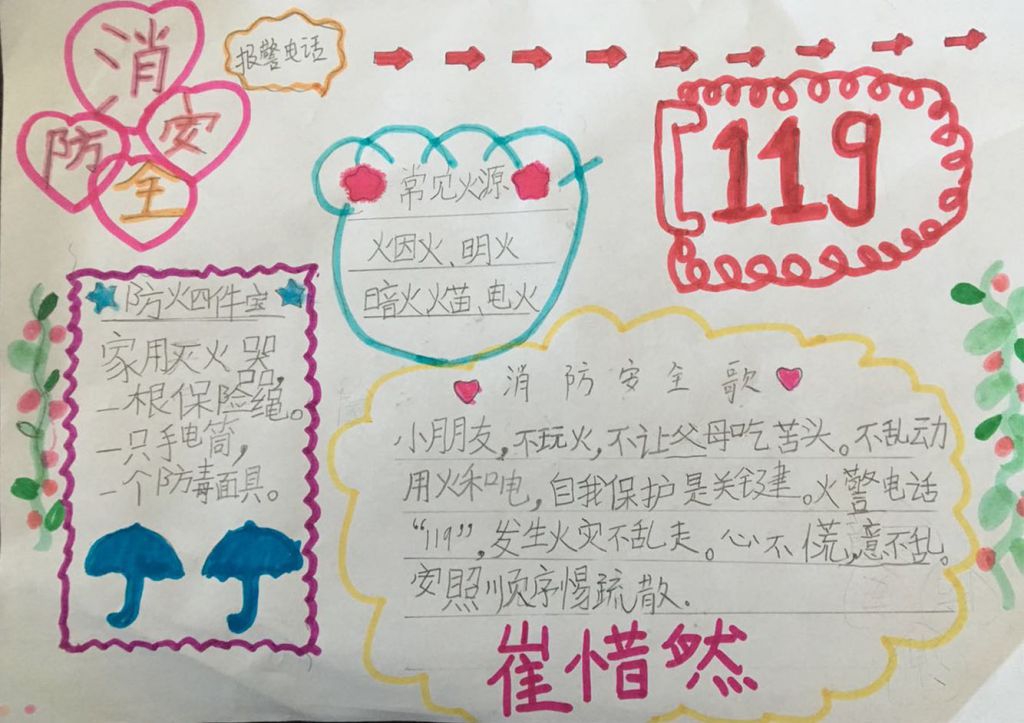 消
防安
全
报警电话
119
常见火源
火因火、明火
暗火火苗、电火
防火四件宝
家用灭火器,
一根保险绳。
一只手电筒,
一个防毒面具。
消防安全歌
小朋友,不玩火,不让父母吃苦头。不乱动
用火和电,自我保护是关键。火警电话
“119”,发生火灾不乱走。心不慌,意不乱。
安照顺序惕疏散.
崔惜然